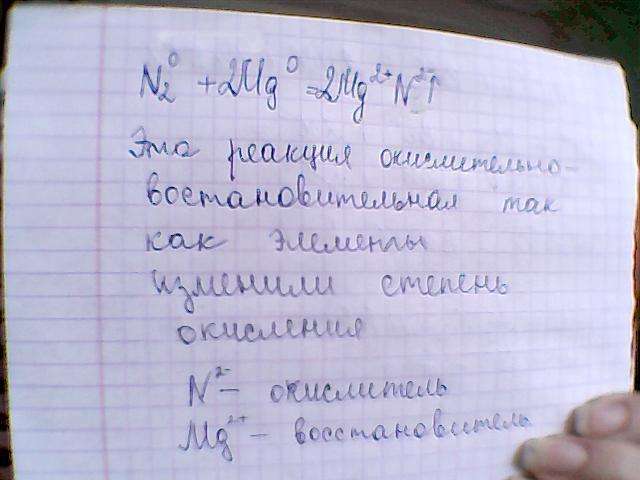 N₂⁰ + 2Mg⁰ = 2Mg²⁺N²⁻↑
Эта реакция окислительно-
востановительная так
как элементы
изменили степень
окисления
N²⁻ – окислитель
Mg²⁺ – восстановитель